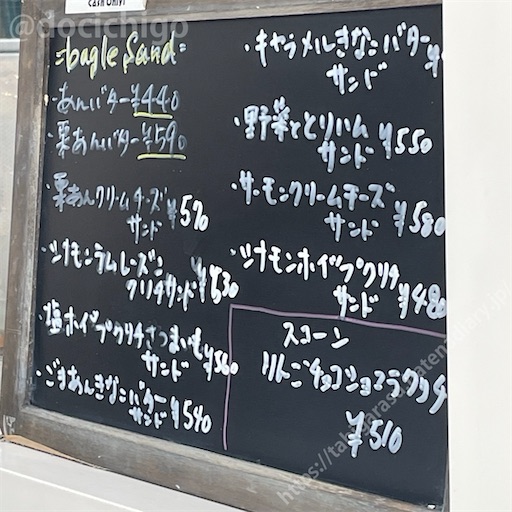 Cash Only!
@docichigo
=bagle Sand=
・あんバター¥440
・栗あんバター¥590
・栗あんクリームチーズ
サンド ¥570
・シナモンラムレーズン
クリチサンド ¥530
・塩ホイップクリチさつまいも
サンド ¥560
・ごまあんきなこバター
サンド ¥540
・キャラメルきなこバター ¥
サンド
・野菜ととりハム
サンド ¥550
・サーモンクリームチーズ
サンド ¥580
・シナモンホイップクリチ
サンド ¥480
スコーン
りんごチョコショコラクリチ
¥510